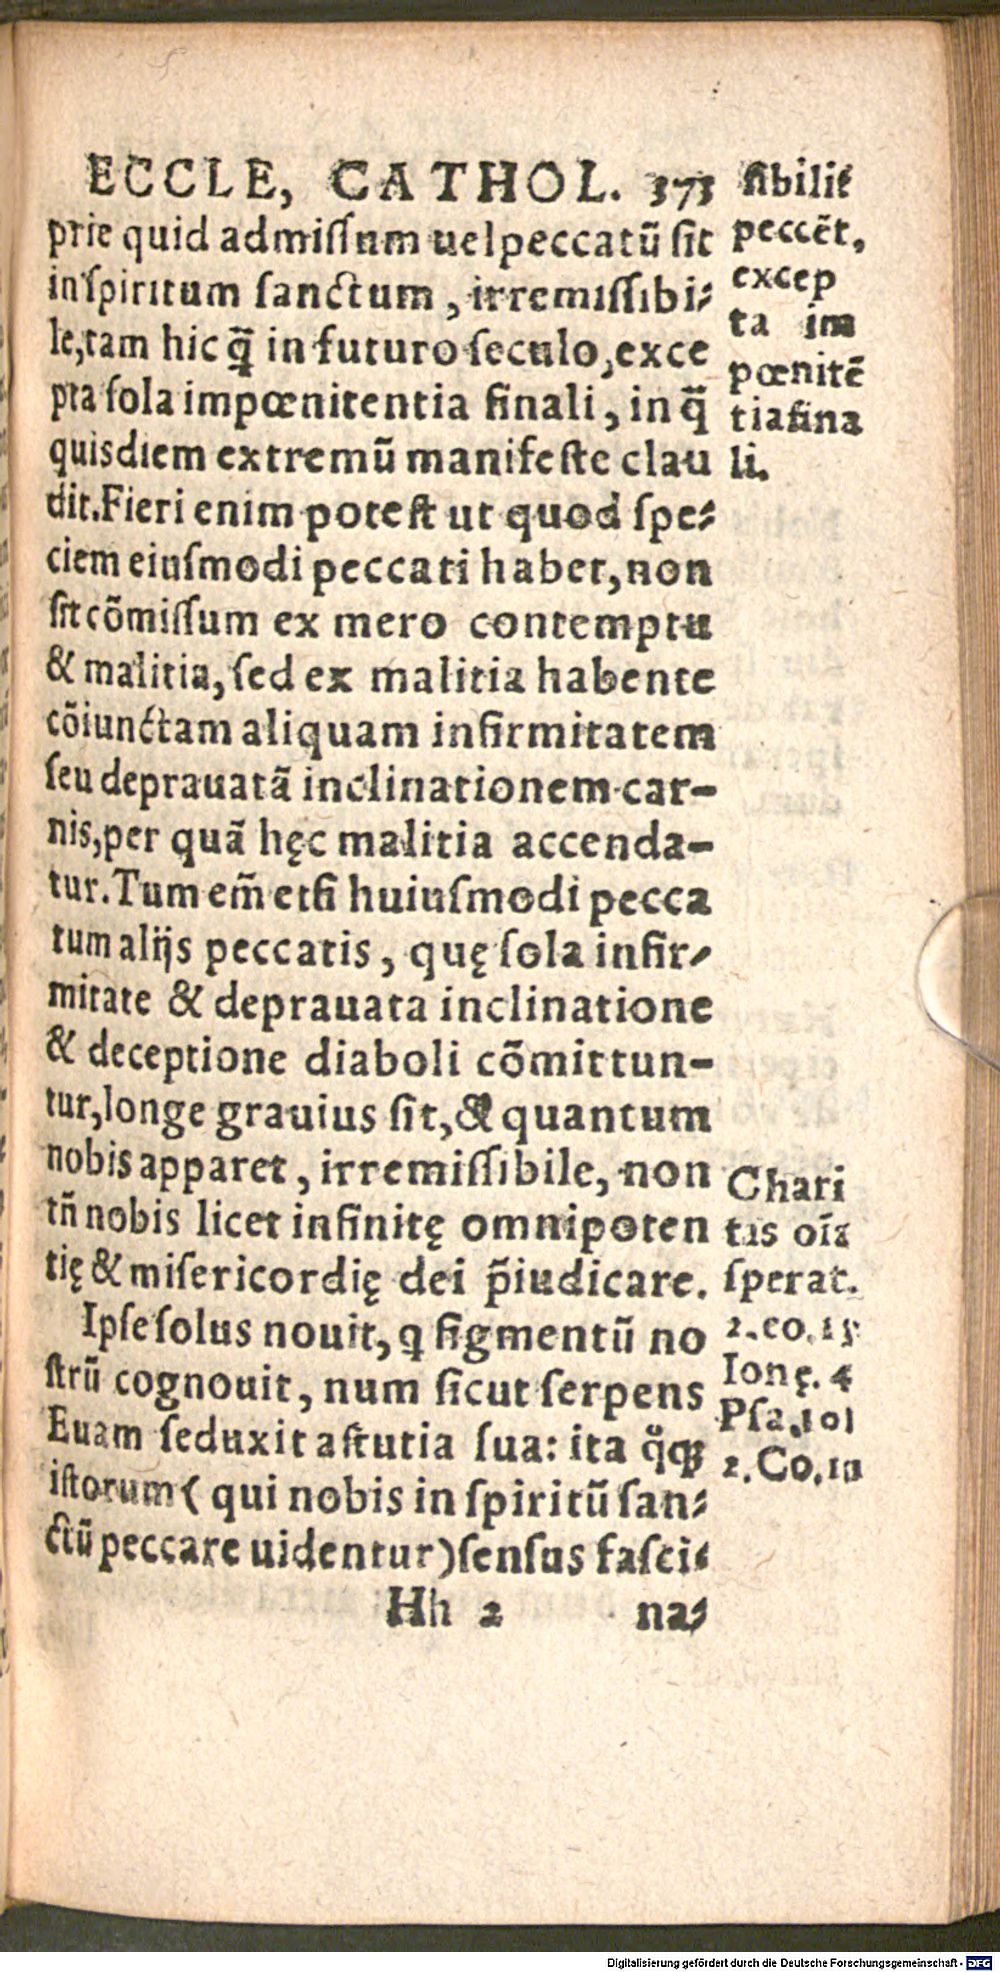 ECCLE, CATHOL. 373
prie quid admiſſum uel peccatũ ſit
in ſpiritum ſanctum, irremiſſibi⸗
le, tam hic q̃ in futuro ſeculo, exce
pta ſola impœnitentia finali, in q̃
quis diem extremũ manifeſte clau
dit. Fieri enim poteſt ut quod ſpe⸗
ciem eiuſmodi peccati habet, non
ſit cõmiſſum ex mero contemptu
& malitia, ſed ex malitia habente
cõiunctam aliquam infirmitatem
ſeu deprauatã inclinationem car-
nis, per quã hęc malitia accenda-
tur. Tum em̃ etſi huiuſmodi pecca
tum alijs peccatis, quę ſola infir⸗
mitate & deprauata inclinatione
& deceptione diaboli cõmittun-
tur, longe grauius ſit, & quantum
nobis apparet, irremiſſibile, non
tñ nobis licet infinitę omnipoten
tię & miſericordię dei p̃iudicare.
Ipſe ſolus nouit, q figmentũ no
ſtrũ cognouit, num ſicut ſerpens
Euam ſeduxit aſtutia ſua: ita q̊ꝗ
iſtorum (qui nobis in ſpiritũ ſan⸗
ctũ peccare uidentur) ſenſus faſci⸗
Hh 2 na⸗
ſibilit̃
peccẽt,
excep
ta im
pœnitẽ
tia fina
li.
Chari
tas oĩa
ſperat.
2. co. 15
Ionę. 4
Pſa. 101
2. Co. 11
Digitalisierung gefördert durch die Deutsche Forschungsgemeinschaft - DFG